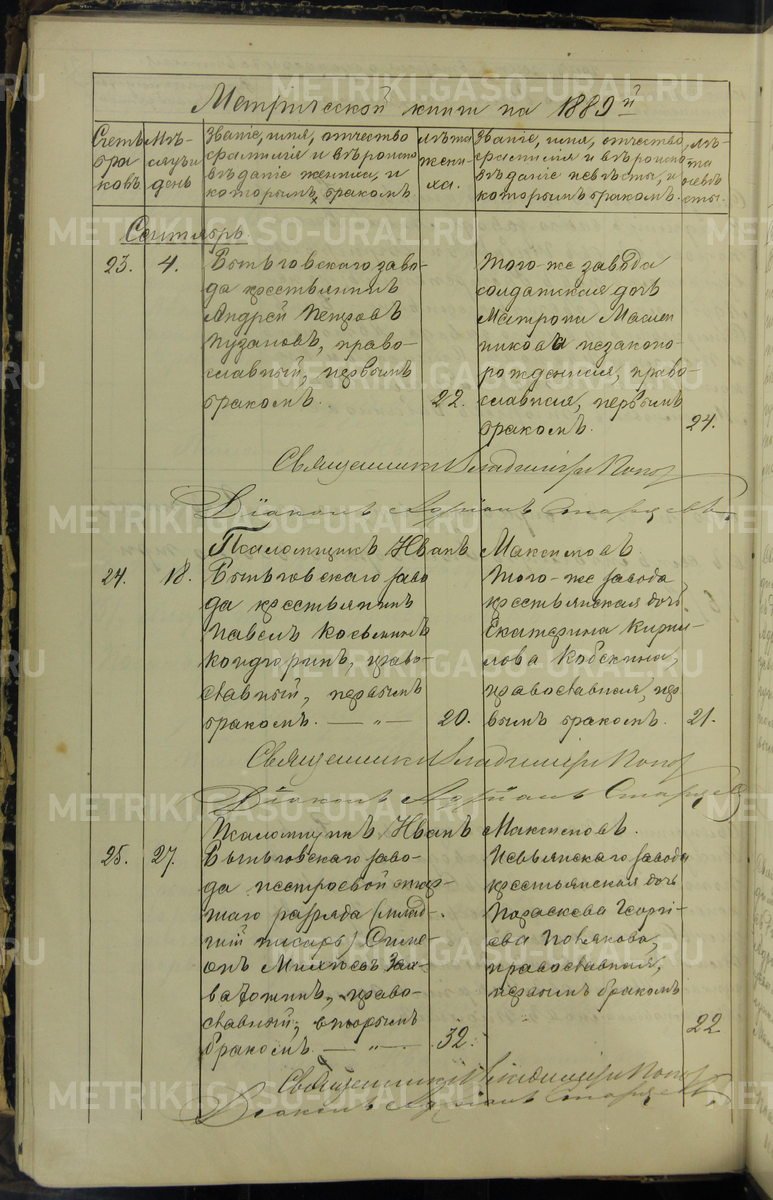 Метрической книги на 1889й
Счетъ браковъ
Мѣсяцъ и день
Званіе, имя, отчество, фамилія и вѣроисповѣданіе жениха, и которымъ бракомъ
лѣта жениха.
Званіе, имя, отчество, фамилія и вѣроисповѣданіе невѣсты, и которымъ бракомъ.
лѣта невѣсты.
Сентябрь
23. 4.
Быньговскаго заво-
да крестьянинъ
Андрей Петровъ
Пузановъ, право-
славный, первымъ
бракомъ. 22.
Того-же завода
солдатская дочь
Матрона
незаконо-
рожденная, право-
славная, первымъ
бракомъ. 24.
Священникъ Владимiръ Попов
Дiаконъ Адрiанъ Старцевъ
Псаломщикъ Иванъ Максимовъ.
24. 18.
Быньговскаго заво
да крестьянинъ
Павелъ
православный, первымъ
бракомъ. — „ — 20.
Того-же завода
крестьянская дочь
Екатерина Кирил-
лова
православная, пер
вымъ бракомъ. 21.
Священникъ Владимiръ Попов
Дiаконъ Адрiанъ Старцев
Псаломщикъ Иванъ Максимовъ.
25. 27.
Быньговскаго заво-
да нестроевой стар-
шаго разряда (млад-
шiй писарь) Симе-
онъ
право-
славный, вторымъ
бракомъ — „ — 32.
Невьянскаго завода
крестьянская дочь
Параскева Георгi-
ева Полякова,
православная,
первымъ бракомъ
22
Священникъ Владимiръ Попов
Дiаконъ Адрiанъ Старцевъ.
METRIKI.GASO-URAL.RU